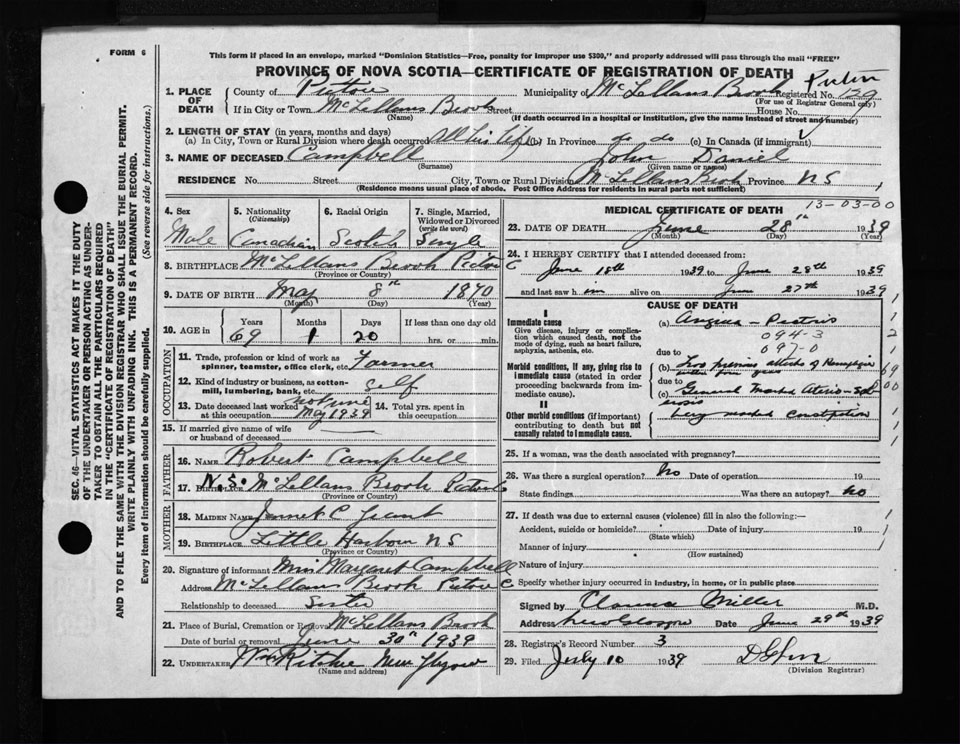 FORM 6
This form if placed in an envelope, marked "Dominion Statistics—Free, penalty for improper use $300," and properly addressed will pass through the mail "FREE"
PROVINCE OF NOVA SCOTIA—CERTIFICATE OF REGISTRATION OF DEATH
Pictou
1. PLACE OF DEATH
County of Pictou Municipality of McLellans Brook Registered No. 129
(For use of Registrar General only)
If in City or Town McLellans Brook Street House No.
(Name) (If death occurred in a hospital or institution, give the name instead of street and number)
2. LENGTH OF STAY (in years, months and days)
(a) In City, Town or Rural Division where death occurred All his life (b) In Province do do (c) In Canada (if immigrant)
3. NAME OF DECEASED Campbell John Daniel
(Surname) (Given name or names)
RESIDENCE No. Street City, Town or Rural Division McLellans Brook Province NS
(Residence means usual place of abode. Post Office Address for residents in rural parts not sufficient)
4. Sex
Male
5. Nationality (Citizenship)
Canadian
6. Racial Origin
Scotch
7. Single, Married, Widowed or Divorced (write the word)
Single
8. BIRTHPLACE McLellans Brook Pictou C
(Province or Country)
9. DATE OF BIRTH May 8th 1870
(Month) (Day) (Year)
10. AGE in
Years Months Days If less than one day old
69 1 20 hrs. or min.
OCCUPATION
11. Trade, profession or kind of work as spinner, teamster, office clerk, etc. Farmer
12. Kind of industry or business, as cotton-mill, lumbering, bank, etc. Self
13. Date deceased last worked at this occupation May 1939
14. Total yrs. spent in this occupation
15. If married give name of wife or husband of deceased
FATHER
16. NAME Robert Campbell
17. BIRTHPLACE N.S. McLellans Brook Pictou C
(Province or Country)
MOTHER
18. MAIDEN NAME Jennet C Grant
19. BIRTHPLACE Little Harbour NS
(Province or Country)
20. Signature of informant Miss Margaret Campbell
Address McLellans Brook Pictou C
Relationship to deceased Sister
21. Place of Burial, Cremation or Removal McLellans Brook
Date of burial or removal June 30th 1939
22. UNDERTAKER Wm Ritchie New Glasgow
(Name and address)
MEDICAL CERTIFICATE OF DEATH
13-03-00
23. DATE OF DEATH June 28th 1939
(Month) (Day) (Year)
24. I HEREBY CERTIFY that I attended deceased from:
June 18th 1939 to June 28th 1939
and last saw him alive on June 27th 1939
CAUSE OF DEATH
I
Immediate cause
Give disease, injury or complication which caused death, not the mode of dying, such as heart failure, asphyxia, asthenia, etc.
(a) Angina-Pectoris
094-3
097-0
due to
Morbid conditions, if any, giving rise to immediate cause (stated in order proceeding backwards from immediate cause).
(b) Two previous attacks of
due to
(c) General marked
II
Other morbid conditions (if important) contributing to death but not causally related to immediate cause.
Very marked Constipation
25. If a woman, was the death associated with pregnancy?
26. Was there a surgical operation? No Date of operation 19
State findings Was there an autopsy? No
27. If death was due to external causes (violence) fill in also the following:—
Accident, suicide or homicide? Date of injury 19
(State which)
Manner of injury
(How sustained)
Nature of injury
Specify whether injury occurred in industry, in home, or in public place
Signed by Miller M.D.
Address New Glasgow Date June 29th 1939
28. Registrar's Record Number 3
29. Filed July 10 1939
(Division Registrar)
SEC. 46—VITAL STATISTICS ACT MAKES IT THE DUTY
OF THE UNDERTAKER OR PERSON ACTING AS UNDER-
TAKER TO OBTAIN ALL THE PARTICULARS REQUIRED
IN THE "CERTIFICATE OF REGISTRATION OF DEATH"
AND TO FILE THE SAME WITH THE DIVISION REGISTRAR WHO SHALL ISSUE THE BURIAL PERMIT.
WRITE PLAINLY WITH UNFADING INK. THIS IS A PERMANENT RECORD.
Every item of information should be carefully supplied. (See reverse side for instructions.)